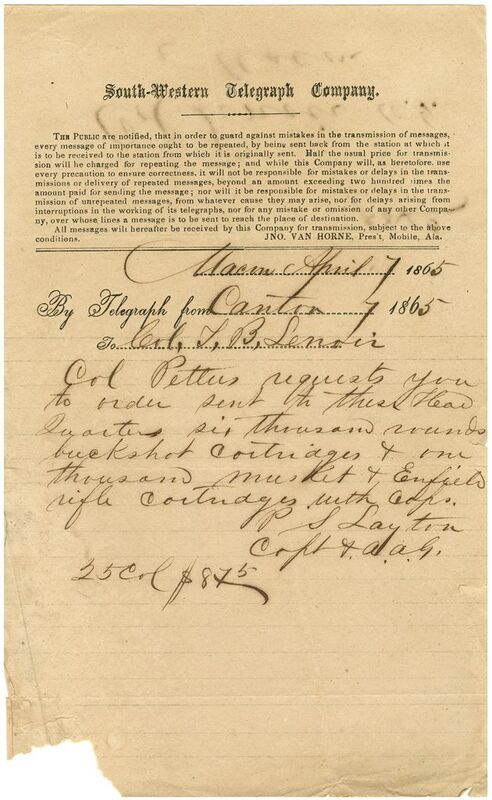 South-Western Telegraph Company.
THE PUBLIC are notified, that in order to guard against mistakes in the transmission of messages,
every message of importance ought to be repeated, by being sent back from the station at which it
is to be received to the station from which it is originally sent. Half the usual price for transmis-
sion will be charged for repeating the message; and while this Company will, as heretofore, use
every precaution to ensure correctness, it will not be responsible for mistakes or delays in the trans-
missions or delivery of repeated messages, beyond an amount exceeding two hundred times the
amount paid for sending the message; nor will it be responsible for mistakes or delays in the trans-
mission of unrepeated messages, from whatever cause they may arise, nor for delays arising from
interruptions in the working of its telegraphs, nor for any mistake or omission of any other Compa-
ny, over whose lines a message is to be sent to reach the place of destination.
All messages will hereafter be received by this Company for transmission, subject to the above
conditions. JNO. VAN HORNE, Pres't, Mobile, Ala.
Macon April 7 1865
By Telegraph from Canton 7 1865
To Col. T. B. Lenoir
Col Pettus requests you
to order sent to these Head
Quarters six thousand rounds
buckshot cartridges & one
thousand musket & Enfield
rifle cartridges with caps.
P S Layton
Capt & a.a.G.
25 Col $8 75